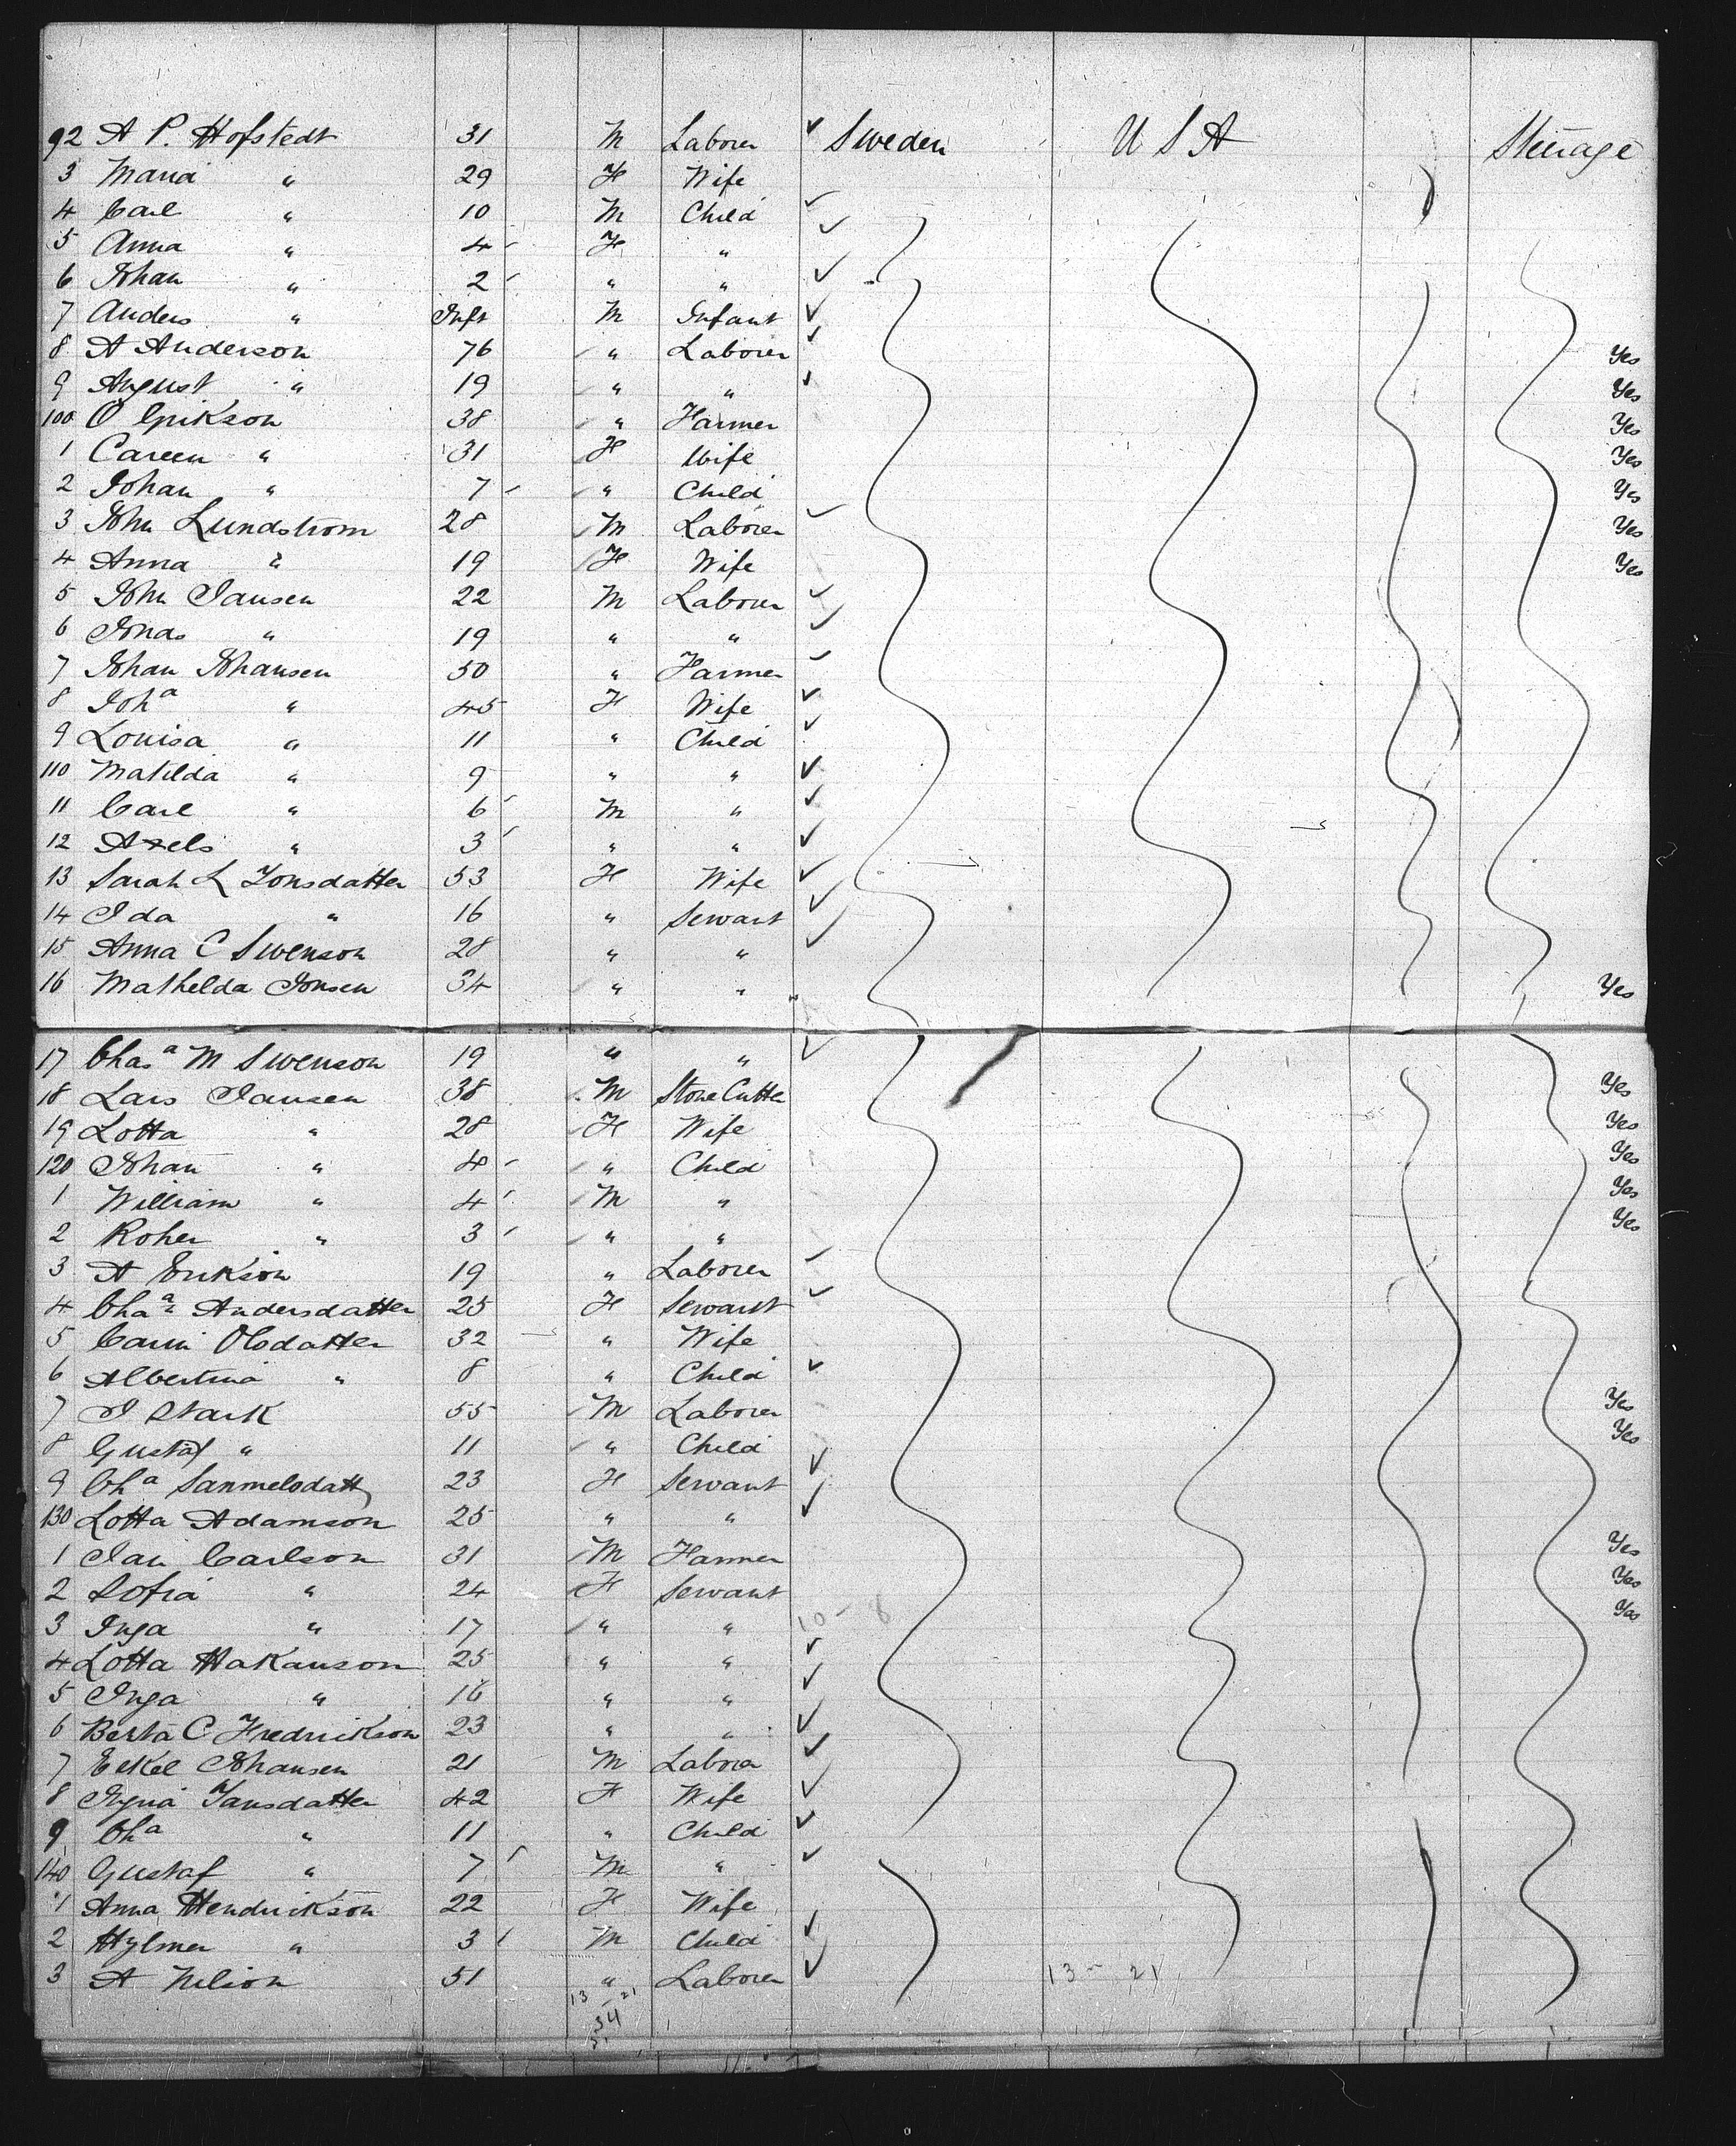 92 A P. Hofstedt 31 M Laborer ✓ Sweden U S A Steerage
3 Maria " 29 F Wife
4 Carl " 10 M Child ✓
5 Anna " 4 F " ✓
6 Johan " 2 " " ✓
7 Anders " Inft M Infant ✓
8 A Anderson 76 " Laborer ✓ Yes
9 August " 19 " " ✓ Yes
100 O Erikson 38 " Farmer Yes
1 Careen " 31 F Wife Yes
2 Johan " 7 " Child Yes
3 John Lundstrom 28 M Laborer ✓ Yes
4 Anna " 19 F Wife Yes
5 John Jansen 22 M Laborer ✓
6 Jonas " 19 " " ✓
7 Johan Johansen 50 " Farmer ✓
8 Joh a " 45 F Wife ✓
9 Louisa " 11 " Child ✓
110 Matilda " 9 " " ✓
11 Carl " 6 M " ✓
12 Axels " 3 " " ✓
13 Sarah L Jonsdatter 53 F Wife ✓
14 Ida " 16 " Servant ✓
15 Anna C Swenson 28 " " ✓
16 Mathelda Jonsen 34 " " Yes
17 Chas a M Swenson 19 " " ✓
18 Lars Jansen 38 M Stone Cutter Yes
19 Lotta " 28 F Wife Yes
120 Johan " 4 " Child Yes
1 William " 4 M " Yes
2 Roher " 3 " " Yes
3 A Erikson 19 " Laborer ✓
4 Cha a Andersdatter 25 F Servant ✓
5 Carin Olsdatter 32 " Wife
6 Albertina " 8 " Child ✓
7 J Stark 55 M Laborer Yes
8 Gustaf " 11 " Child Yes
9 Ch a Sanmelsdatt 23 F Servant ✓
130 Lotta Adamson 25 " " ✓
1 Jan Carlson 31 M Farmer Yes
2 Sofia " 24 F Servant Yes
3 Inga " 17 " " 10 - 8 Yes
4 Lotta Hakanson 25 " " ✓
5 Inga " 16 " " ✓
6 Berta C Fredrikson 23 " " ✓
7 Eskel Johansen 21 M Laborer ✓
8 Jansdatter 42 F Wife ✓
9 Ch a " 11 " Child ✓
140 Gustaf " 7 M " ✓
1 Anna Hendrikson 22 F Wife
2 Hylmer " 3 M Child ✓
3 A Nelson 51 " Laborer ✓ 13 - 21
13 - 21
34